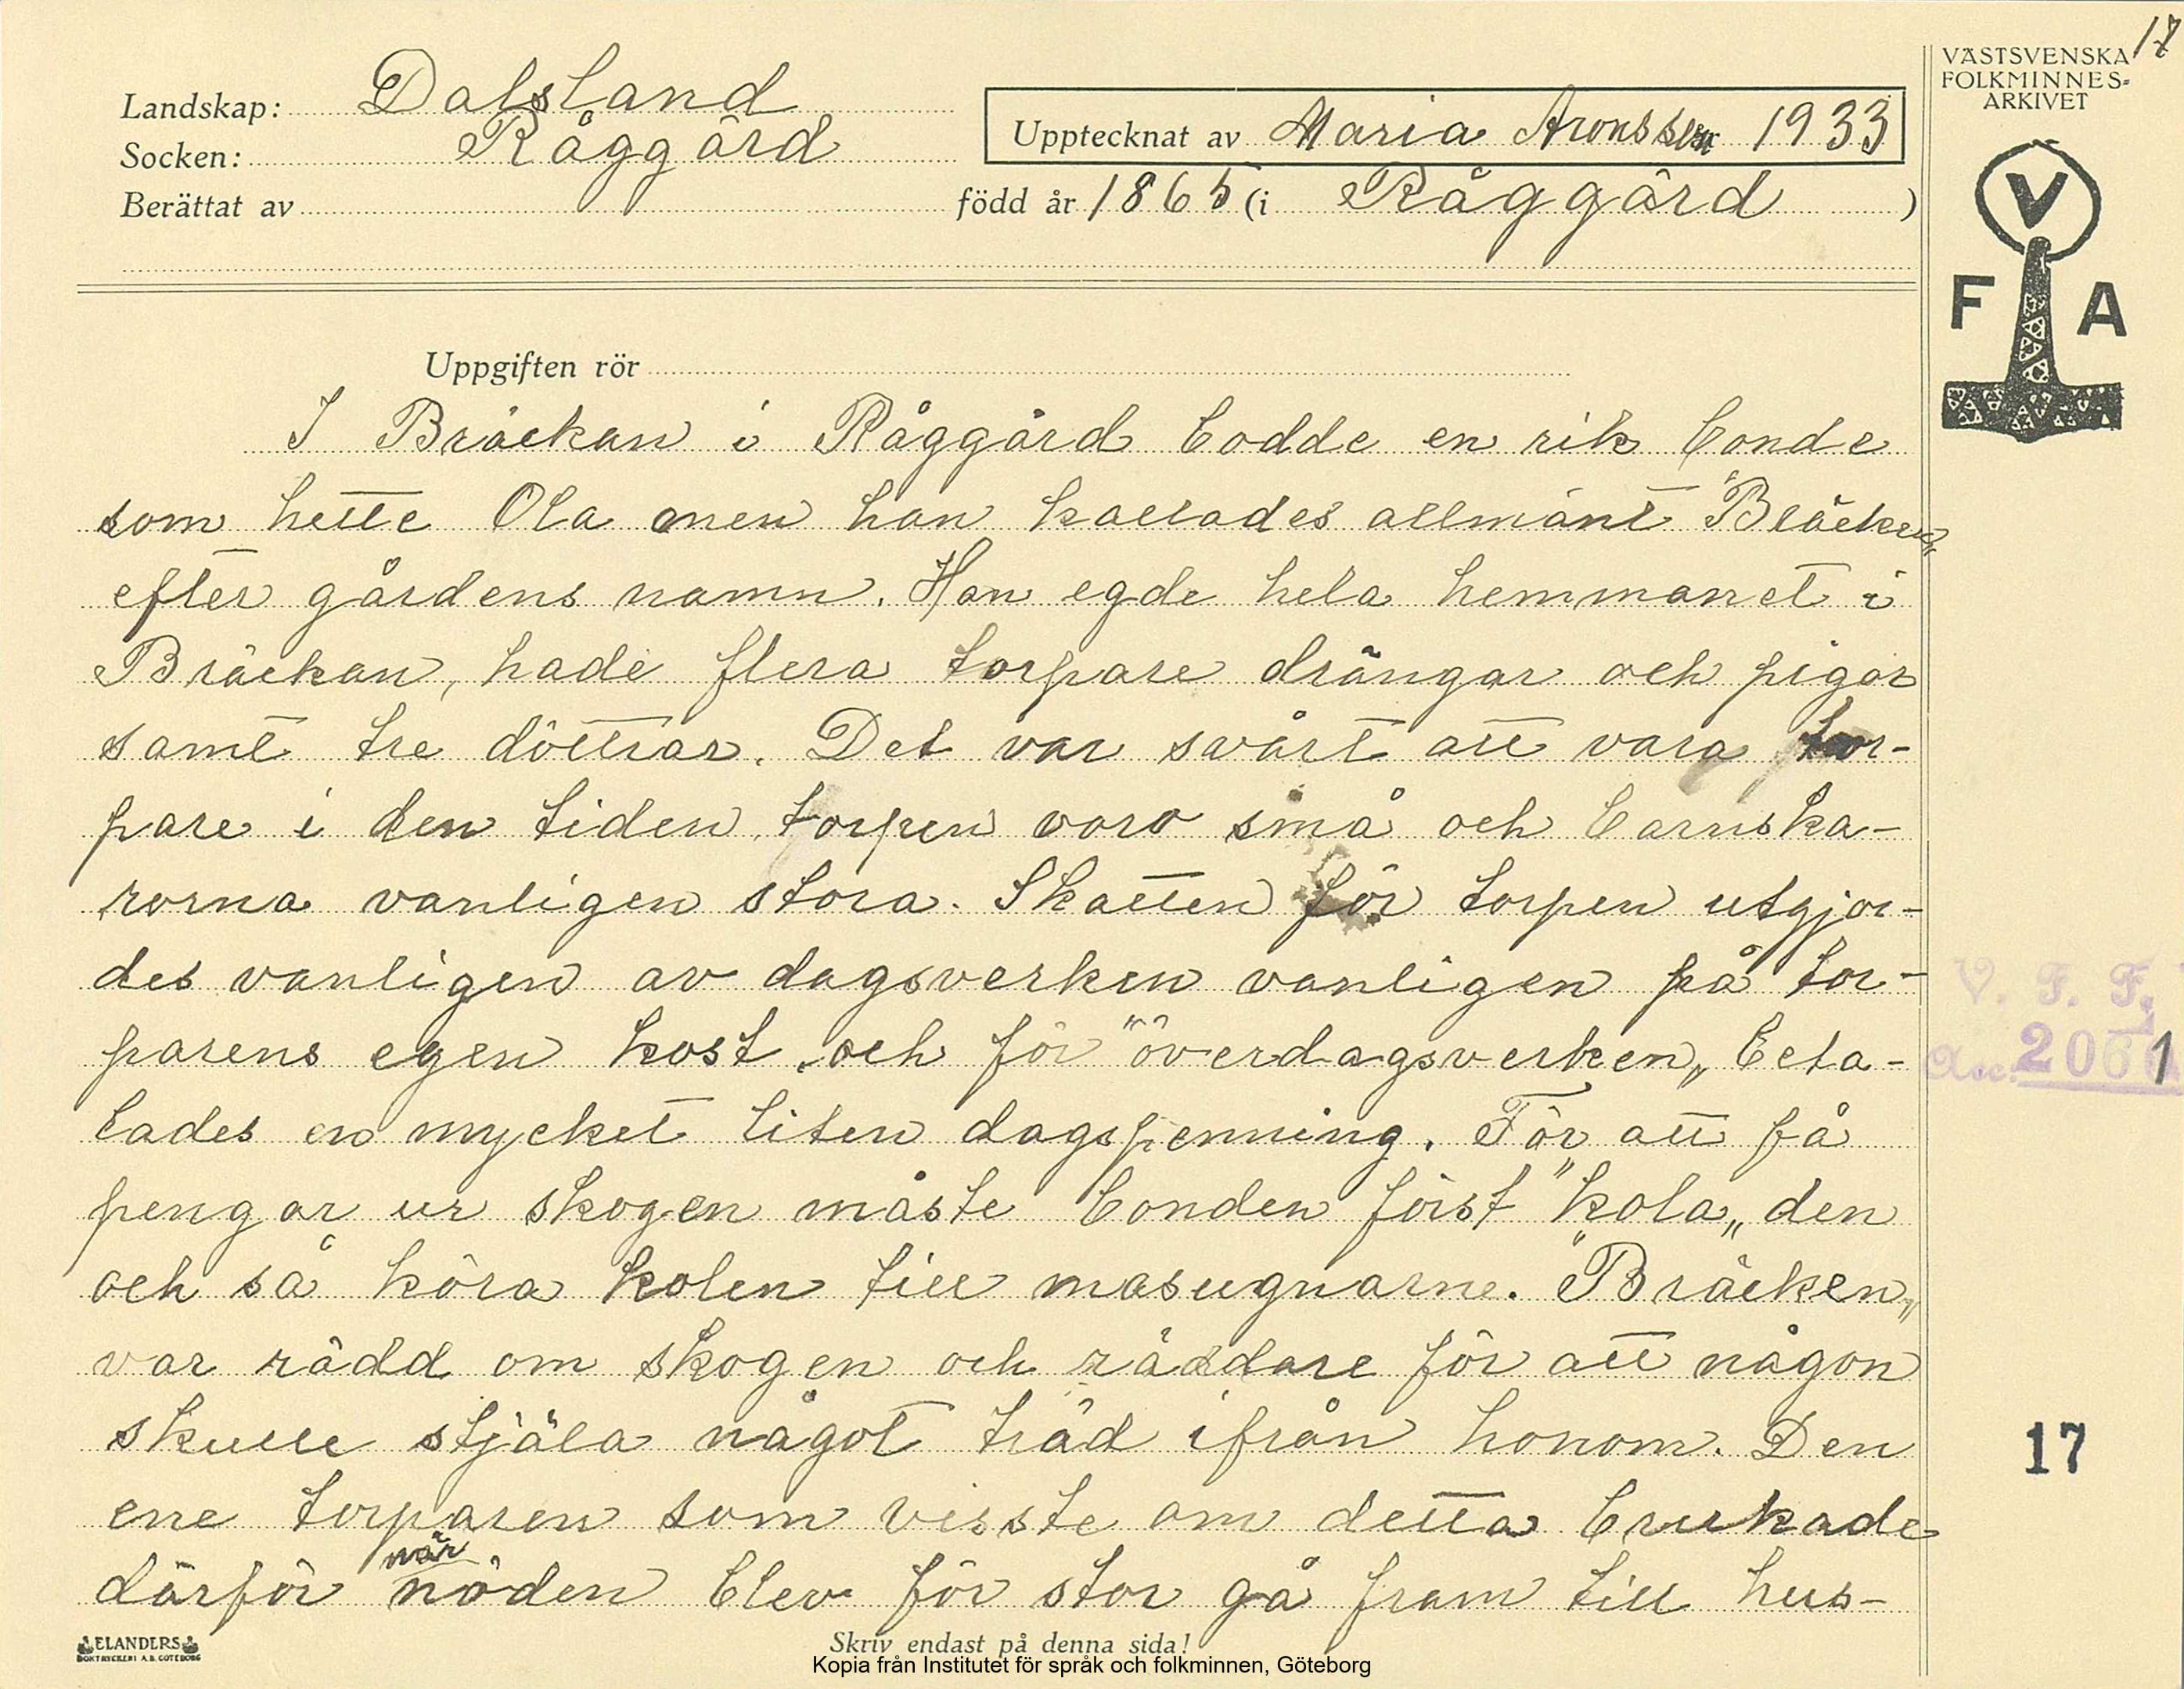 17
VÄSTSVENSKA
FOLKMINNES-
ARKIVET
Landskap: Dalsland
Socken: Råggärd
Upptecknat av Maria Aronsson 1933
Berättat av
född år 1865 (i Råggärd )
V
F A
Uppgiften rör
I Bräckan i Råggärd bodde en rik bonde
som hette Ola men han kallades allmänt "Bräcken„
efter gårdens namn. Han egde hela hemmanet i
Bräckan, hade flera torpare drängar och pigor
samt tre döttrar. Det var svårt att vara tor-
pare i den tiden, torpen voro små och barnska-
rorna vanligen stora. Skatten för torpen utgjor-
des vanligen av dagsverken vanligen på tor-
parens egen kost och för "överdagsverken„ beta-
lades en mycket liten dagspenning. För att få
pengar ur skogen måste bonden först "kola„ den
och så köra kolen till masugnarne. "Bräcken„
var rädd om skogen och räddare för att någon
skulle stjäla något träd ifrån honom. Den
ene torparen som visste om detta brukade
därför när nöden blev för stor gå fram till hus-
V. F. F.
Acc. 2061
17
ELANDERS
BOKTRYCKERI A.B. GÖTEBORG
Skriv endast på denna sida!
Kopia från Institutet för språk och folkminnen, Göteborg